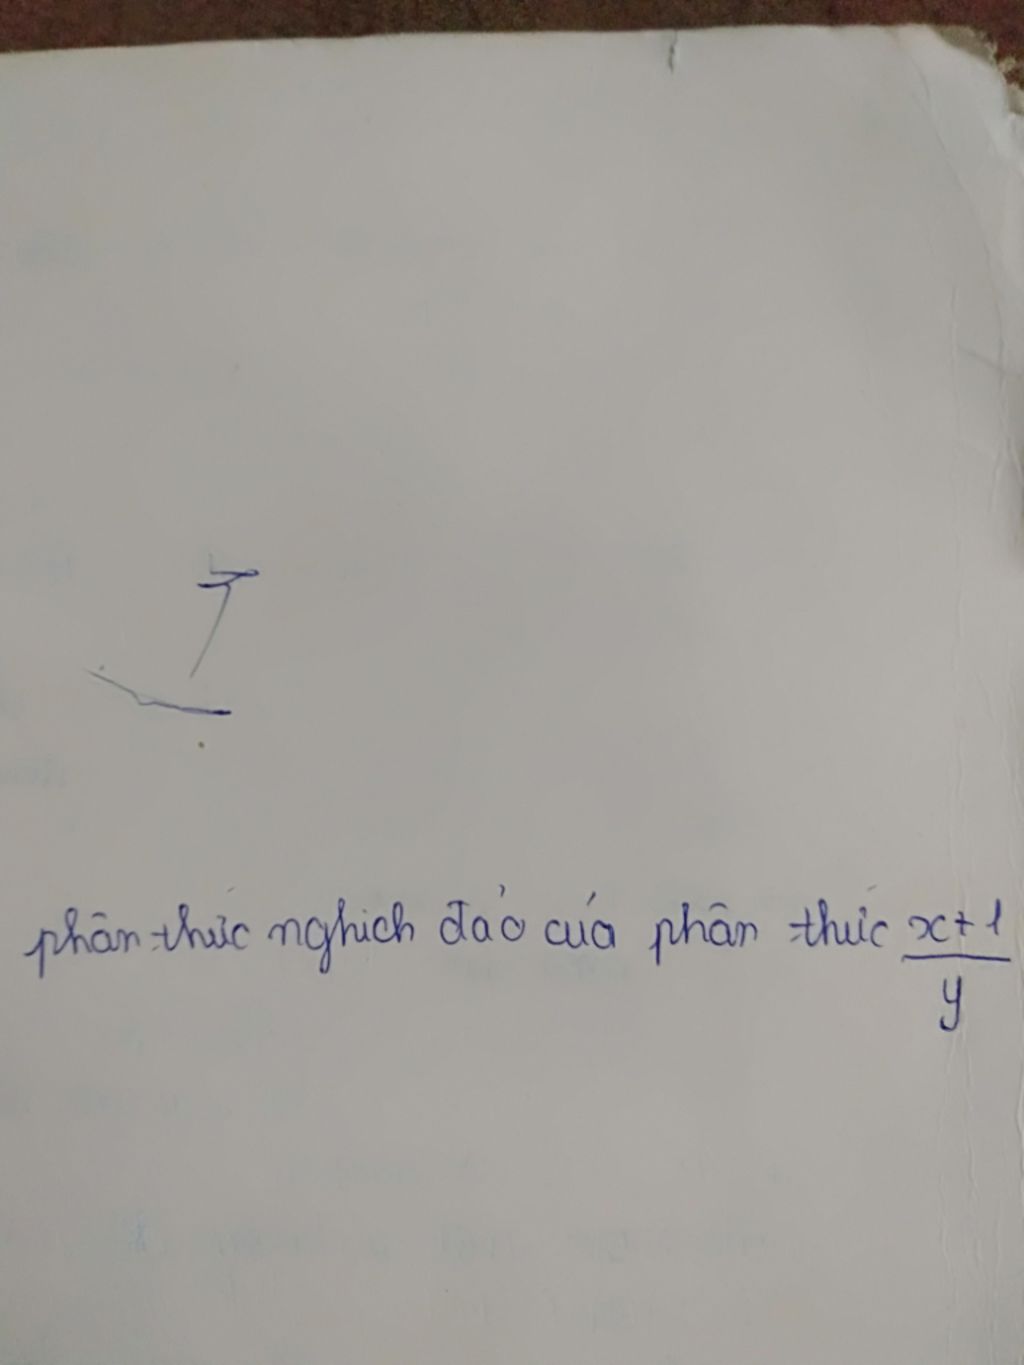 phân thức nghich đảo của phân thức x+1/y